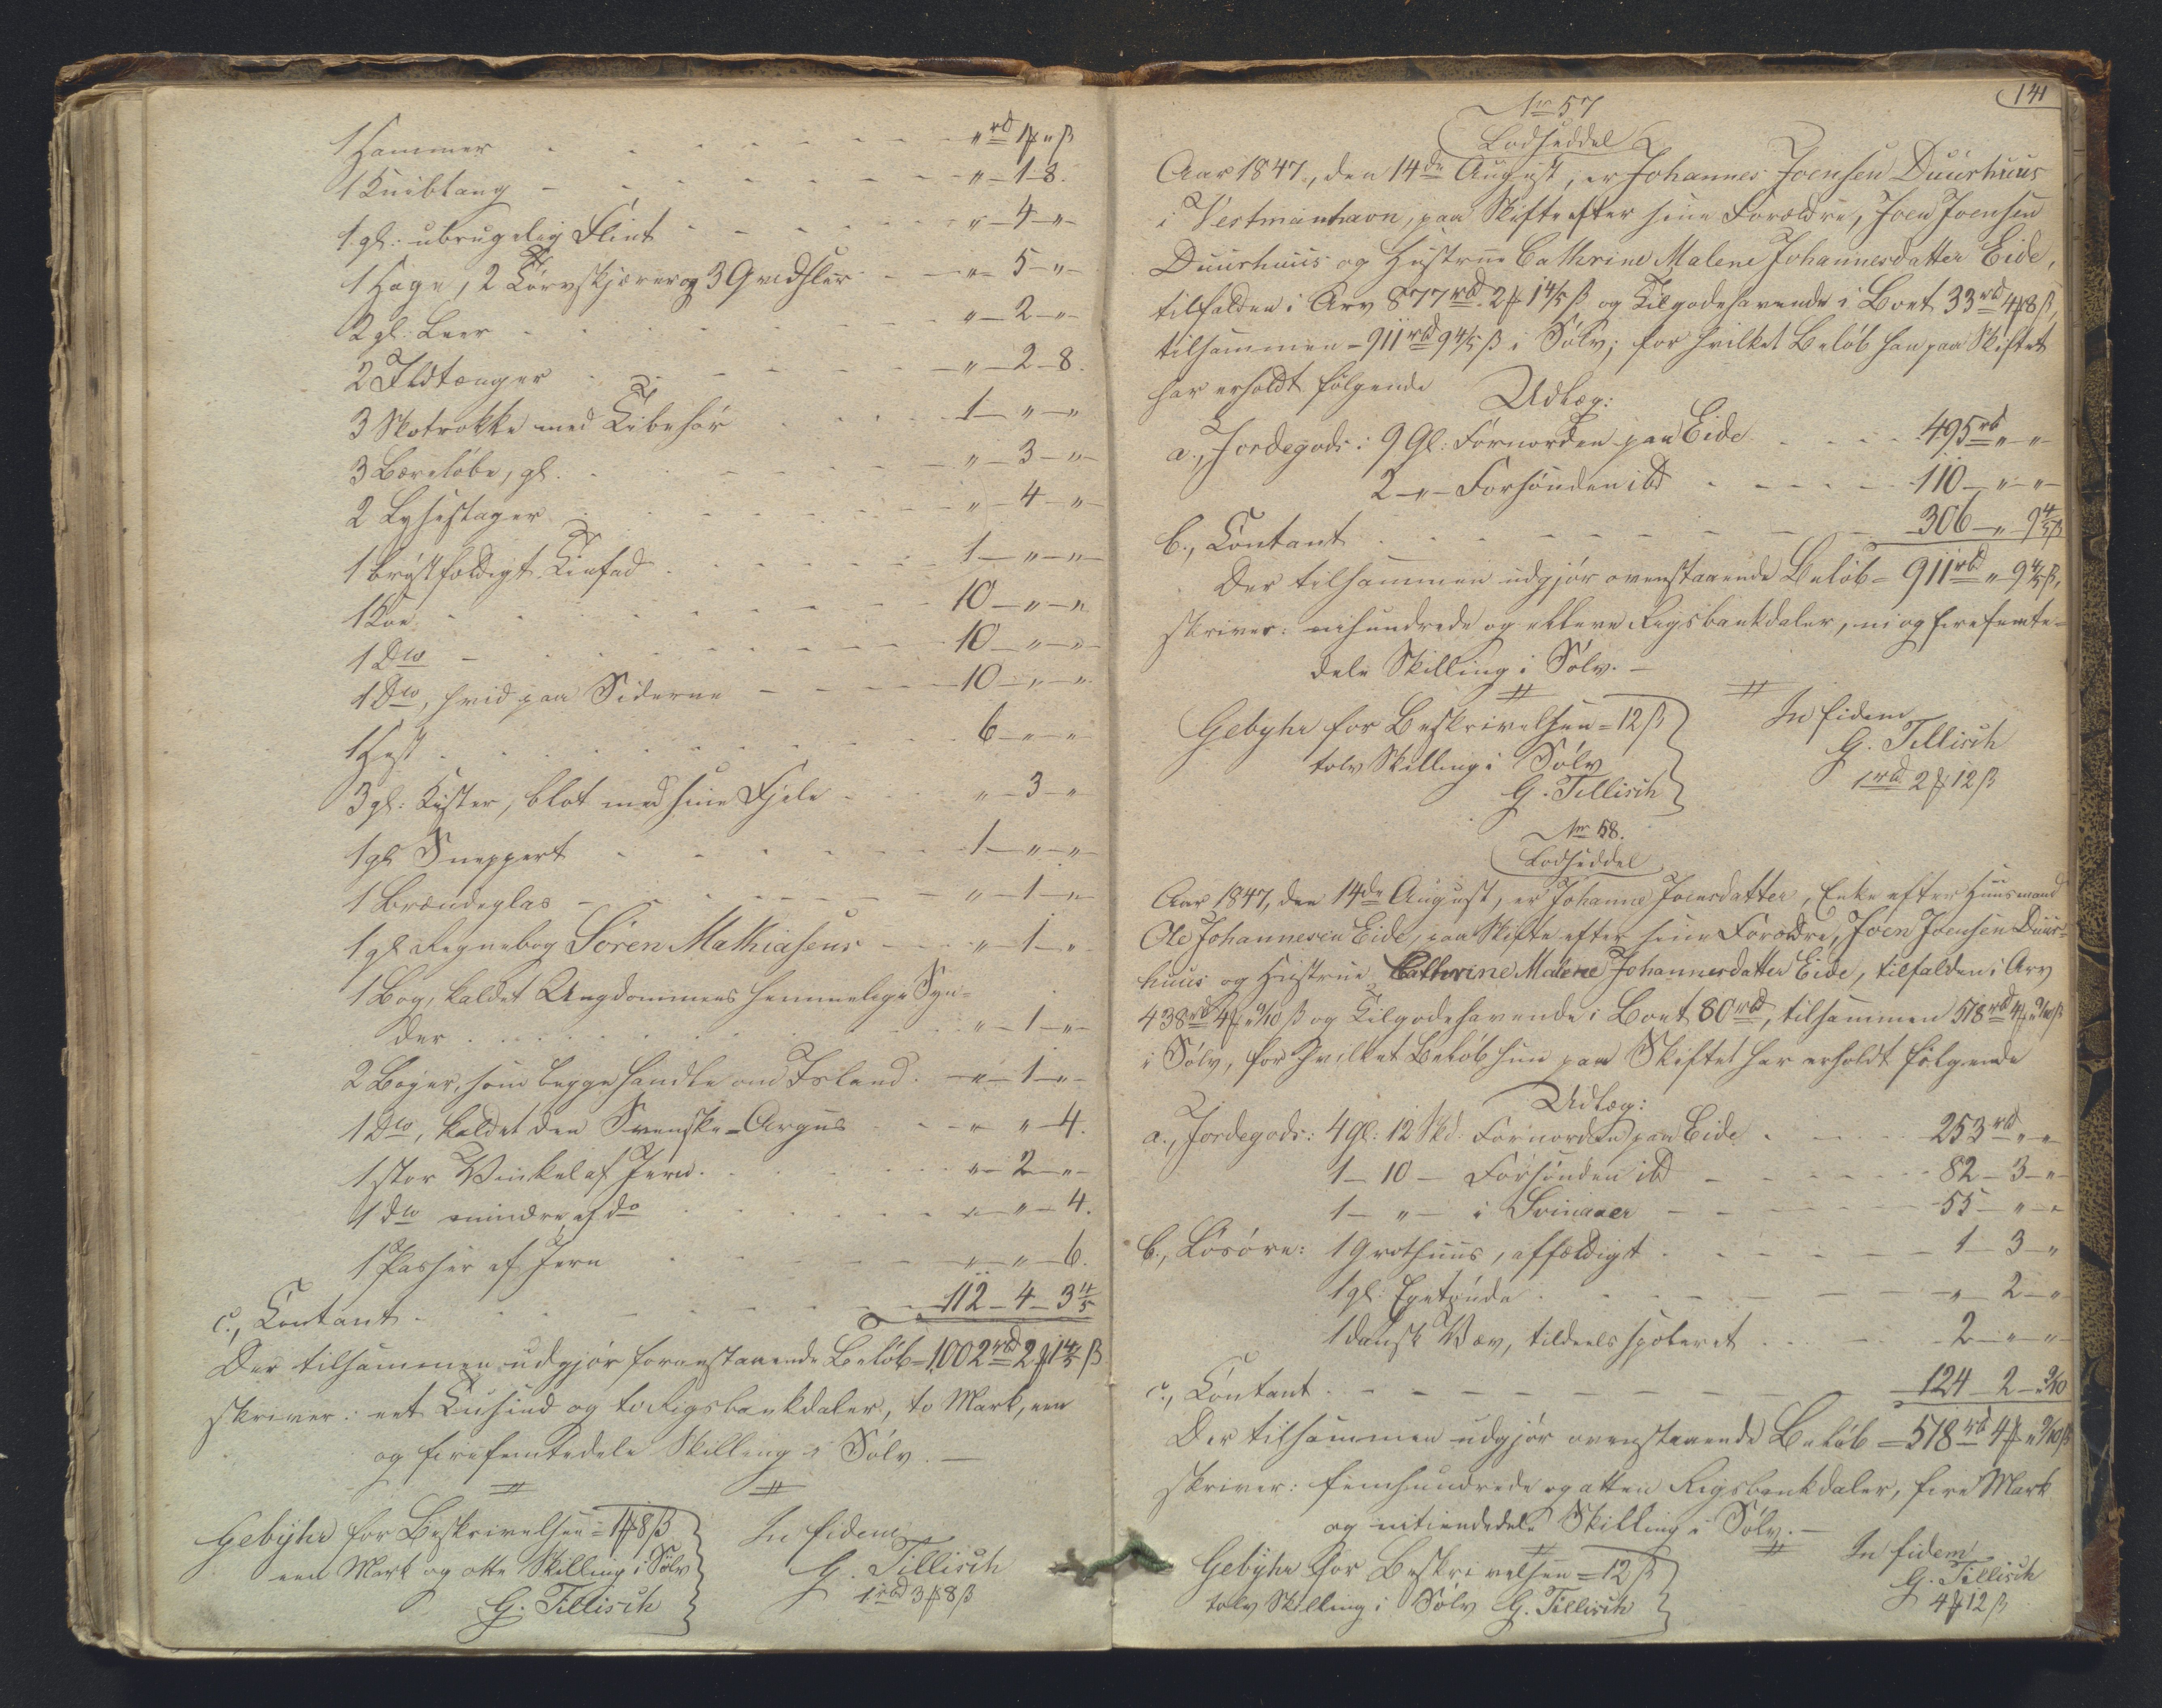 1 Hammer - - - - - - " rd 1 ℳ " ß
1 Knibtang - - - - - - " - 1 - 8.
1 gl: ubrugelig Flint - - - - - " - 4 - "
1 Hage, 2 Tørvskjærer og 3 Gredsler - - " - 5 - "
2 gl. Leer - - - - - - " - 2 - "
2 Ildtænger - - - - - - " - 2 - 8.
3 Skotrokke med Tibehør - - - - 1 - " - "
3 Bæreløbe, gl. - - - - - " - 3 - "
2 Lysestager - - - - - - " - 4 - "
1 brøstfældigt Tinfad - - - - - 1 - " - "
1 Koe - - - - - - 10 - " - "
1 Do - - - - - - 10 - " - "
1 Do, hvid paa Siderne - - - - 10 - " - "
1 Hest - - - - - - 6 - " - "
3 gl: Kister, blot med sine Fjele - - - " - 3 - "
1 gl Sneppert - - - - - 1 - " - "
1 Brændeglas - - - - - " - 1 - "
1 gl Regnebog Sören Mathiasens - - - " - 1 - "
1 Bog, kaldet Ungdommens hemmelige Syn=
der - - - - - - " - 1 - "
2 Bøger, som begge handle om Island. - " - 1 - "
1 Do, kaldet den Svenske-Argus - - - " - " - 4.
1 stor Vinkel af Jern. - - - - " - 2 - "
1 do mindre af do - - - - - " - " - 4.
1 Passer af Jern - - - - - " - " - 6.
c., Contant - - - - - - 112 - 4 - 3 4/5
Der tilsammen udgjør foranstaaende Beløb = 1002 rbd 2 ℳ 1 4/5 ß
skriver: eet Tusind og to Rigsbankdaler, to Mark, een
og firefemtedele Skilling i Sølv. -
Gebyhr for Beskrivelsen = 1 ℳ 8 ß
een Mark og otte Skilling i Sølv
G. Tillisch
In fidem
G. Tillisch
1 rbd 3 ℳ 8 ß
141
Nr 57
Lodseddel
Aar 1847, den 14de August, er Johannes Joensen Duurhuus
i Vestmanhavn, paa Skifte efter sine Forældre, Joen Joensen
Duurhuus og Hustrue Cathrine Malene Johannesdatter Eide,
tilfalden i Arv 877 rbd 2 ℳ 1 4/5 ß og Tilgodehavende i Boet 33 rbd 4 ℳ 8 ß,
tilsammen = 911 rbd 9 4/5 ß i Sølv; for hvilket Beløb han paa Skiftet
har erholdt følgende
Udlæg:
a., Jordegods: 9 Gl: Fornorden paa Eide - - - - 495 rbd " - "
2 - " - Forsønden ibd - - - - 110 - " - "
b., Contant - - - - - - 306 - " - 9 4/5 ß
Der tilsammen udgjør ovenstaaende Beløb = 911 rbd " 9 4/5 ß,
skriver: nihundrede og elleve Rigsbankdaler, ni og firefemte=
dele Skilling i Sølv. -
Gebyhr for Beskrivelsen = 12 ß
tolv Skilling i Sølv
G. Tillisch
In fidem
G. Tillisch
1 rbd 2 ℳ 12 ß
Nr 58.
Lodseddel
Aar 1847, den 14de August, er Johanne Joensdatter, Enke efter Huusmand
Ole Johannesen Eide, paa Skifte efter sine Forældre, Joen Joensen Duur=
huus og Hustrue Cathrine Malene Johannesdatter Eide, tilfalden i Arv
438 rbd 4 ℳ " 9/10 ß og Tilgodehavende i Boet 80 rbd, tilsammen 518 rbd 4 ℳ " 9/10 ß
i Sølv, for hvilket Beløb hun paa Skiftet har erholdt følgende
Udlæg:
a., Jordegods: 4 Gl: 12 Skd: Fornorden paa Eide - - - 253 rbd " - "
1 - 10 - Forsønden ibd - - - - 82 - 3 - "
1 - " - i Svinaaer - - - - 55 - " - "
b., Løsøre: 1 Grothuus, affældigt - - - - 1 - 3 - "
1 gl: Egetønde - - - - " - 2 - "
1 dansk Væv, tildeels spoleret - - - 2 - " - "
c., Contant - - - - - - 124 - 2 - " 9/10
Der tilsammen udgjør ovenstaaende Beløb = 518 rbd 4 ℳ " 9/10 ß
skriver: femhundrede og atten Rigsbankdaler, fire Mark
og nitiendedele Skilling i Sølv. -
Gebyhr for Beskrivelsen = 12 ß
tolv Skilling i Sølv G. Tillisch
In fidem
G. Tillisch
4 ℳ 12 ß